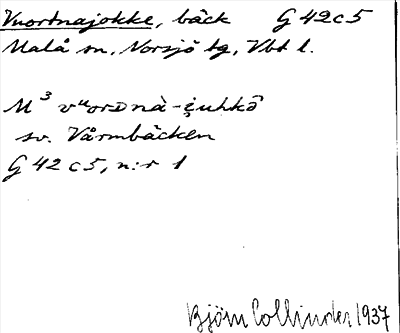 Vuortnajokke, bäck G 42 c 5
Malå sn, Norsjö tg, Vbt l.
M³ vᵘorᴅnà-i̯uhkō̂
sv. Vårmbäcken
G 42 c 5, n:r 1
Björn Collinder 1937